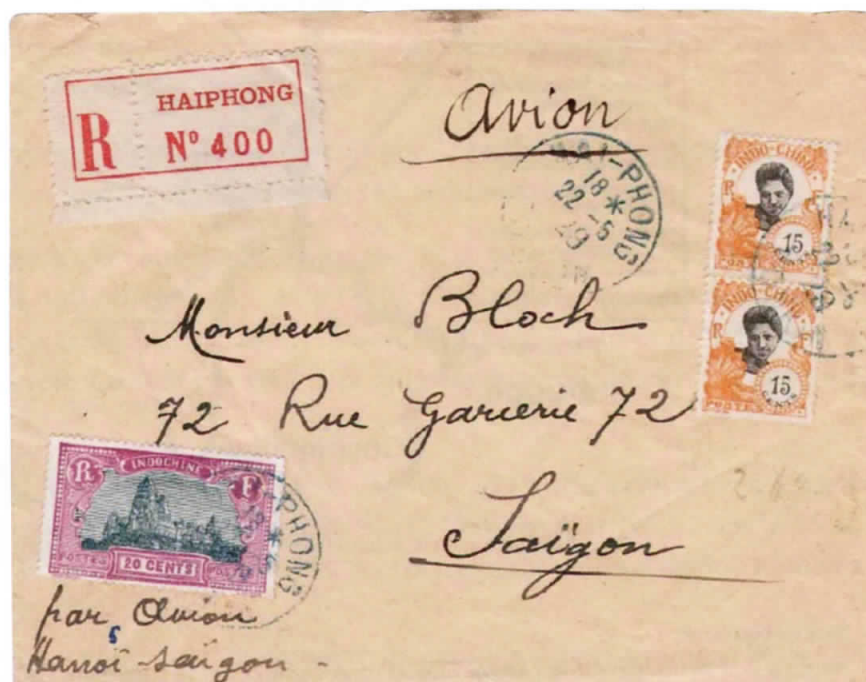 HAIPHONG
R N° 400
Avion
HAI-PHONG
18 *
22 -5
29
INDO-CHINE
R F
15
CENTS
POSTES
INDO-CHINE
R F
15
CENTS
POSTES
Monsieur Bloch
72 Rue Garcerie 72
Saïgon
R INDOCHINE F
POSTES 20 CENTS POSTES
PHONG
par Avion
Hanoï Saïgon -